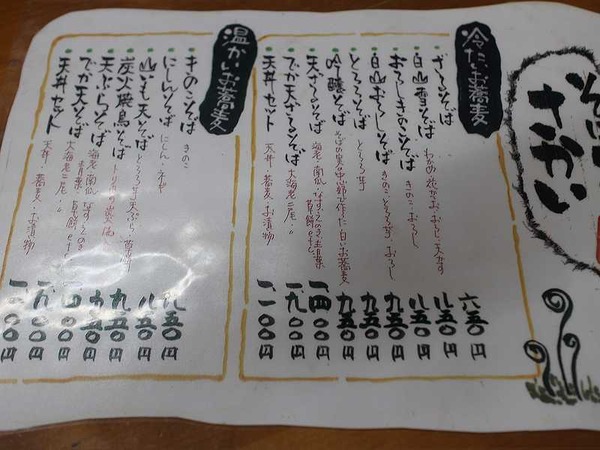 そば
さかい
冷たいお蕎麦
ざるそば 六五〇円
白山雪そば 八五〇円
おろしきのこそば きのこ おろし 八五〇円
白山おろしそば きのこ とろろ芋 おろし 九五〇円
とろろそば とろろ芋 九五〇円
吟醸そば そばの実の中心部で作った白いお蕎麦 九五〇円
天ざるそば 海老 南瓜 なす きのこ 青菜 草餅etc 一四〇〇円
でか天ざるそば 大海老二尾 一九〇〇円
天丼セット 天丼・蕎麦・お漬物 一一〇〇円
温かいお蕎麦
きのこそば きのこ 八五〇円
にしんそば にしん ネギ 八五〇円
山いも天そば 九五〇円
炭火焼鳥そば 九五〇円
天ぷらそば 海老 南瓜 なす きのこ 青菜 草餅etc 一四〇〇円
でか天そば 大海老二尾 一九〇〇円
天丼セット 天丼・蕎麦・お漬物 一一〇〇円